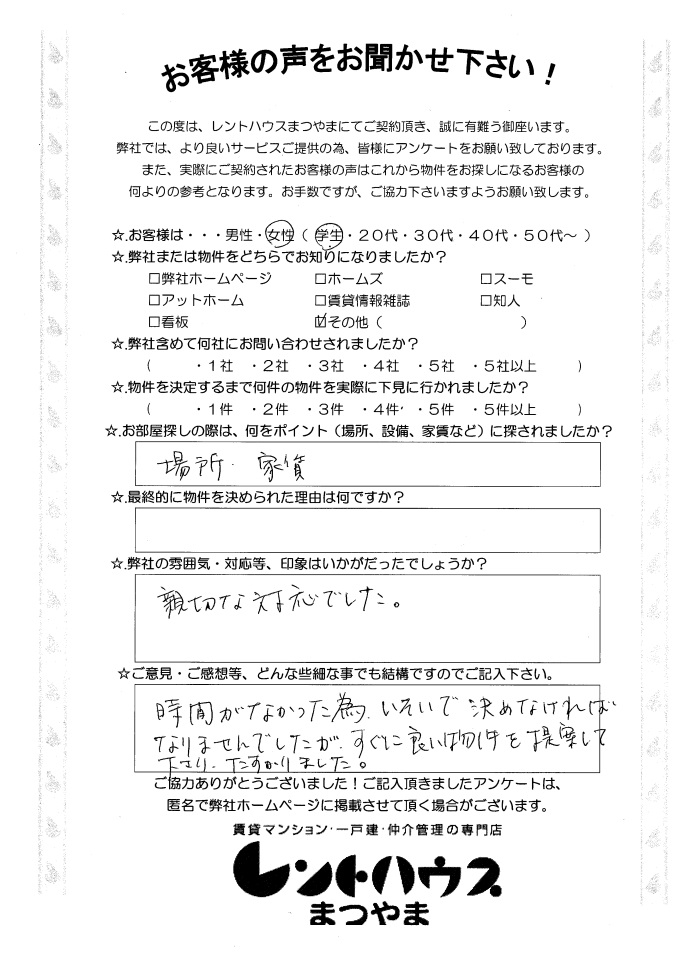 お客様の声をお聞かせ下さい!
この度は、レントハウスまつやまにてご契約頂き、誠に有難う御座います。
弊社では、より良いサービスご提供の為、皆様にアンケートをお願い致しております。
また、実際にご契約されたお客様の声はこれから物件をお探しになるお客様の
何よりの参考となります。お手数ですが、ご協力下さいますようお願い致します。
☆.お客様は・・・男性・女性(学生・20代・30代・40代・50代~)
☆.弊社または物件をどちらでお知りになりましたか?
□弊社ホームページ □ホームズ □スーモ
□アットホーム □賃貸情報雑誌 □知人
□看板 ☑その他( )
☆.弊社含めて何社にお問い合わせされましたか?
( ・1社 ・2社 ・3社 ・4社 ・5社 ・5社以上 )
☆.物件を決定するまで何件の物件を実際に下見に行かれましたか?
( ・1件 ・2件 ・3件 ・4件 ・5件 ・5件以上 )
☆.お部屋探しの際は、何をポイント(場所、設備、家賃など)に探されましたか?
場所・家賃
☆.最終的に物件を決められた理由は何ですか?
☆.弊社の雰囲気・対応等、印象はいかがだったでしょうか?
親切な対応でした。
☆ご意見・ご感想等、どんな些細な事でも結構ですのでご記入下さい。
時間がなかった為、いそいで決めなければ
なりませんでしたが、すぐに良い物件を提案して
下さり、たすかりました。
ご協力ありがとうございました!ご記入頂きましたアンケートは、
匿名で弊社ホームページに掲載させて頂く場合がございます。
賃貸マンション・一戸建・仲介管理の専門店
レントハウス
まつやま